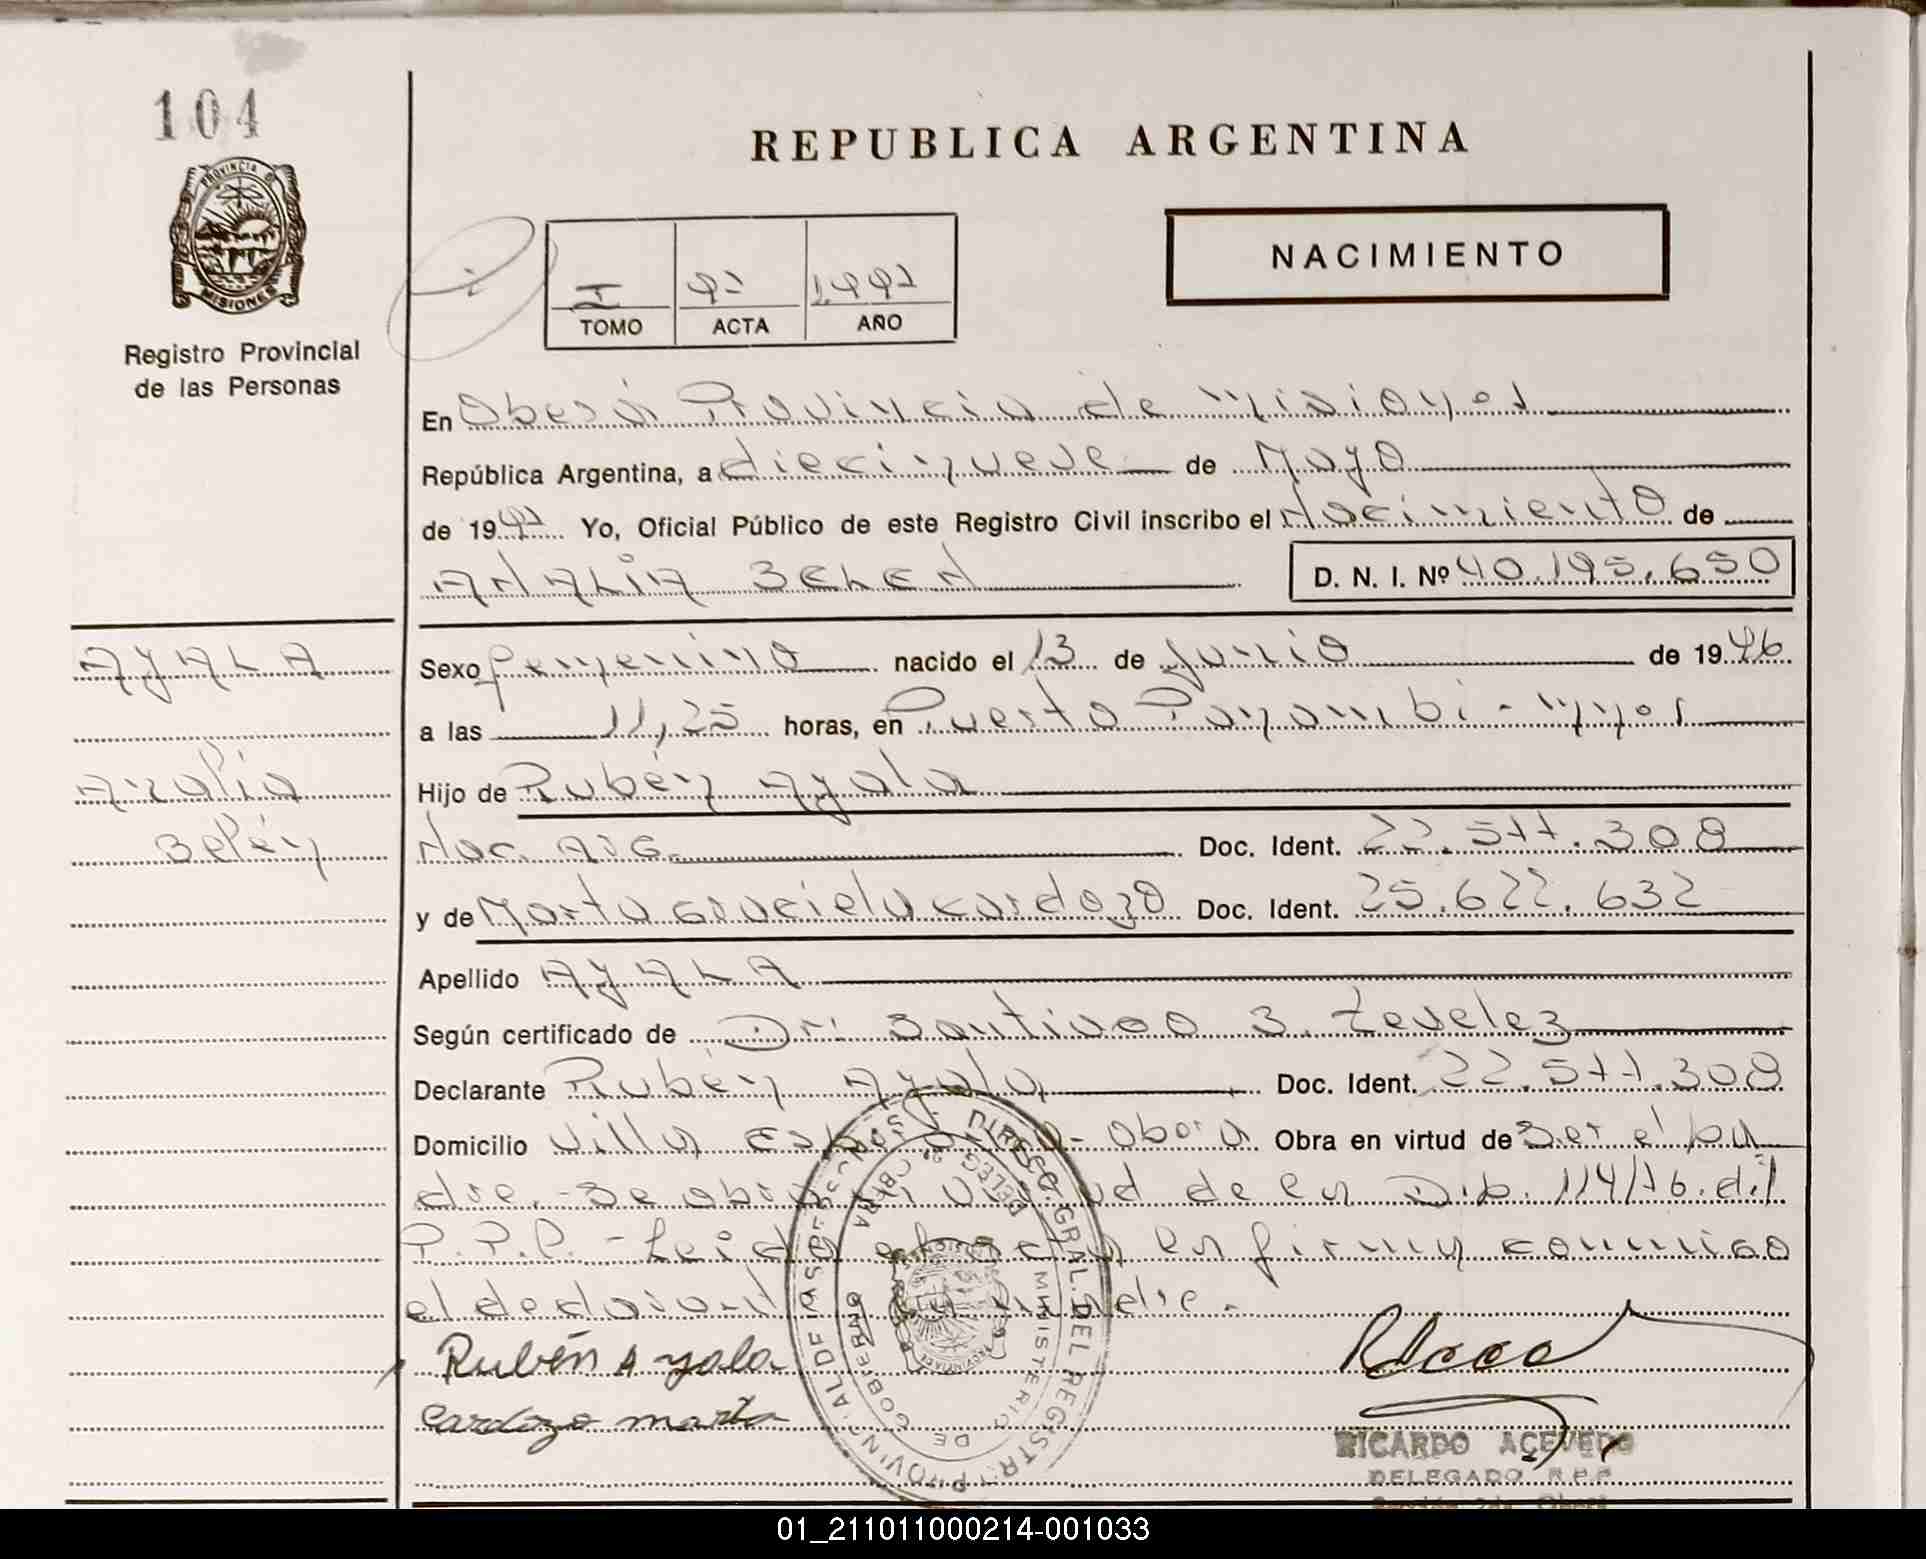 104
REPUBLICA ARGENTINA
PROVINCIA DE
MISIONES
Registro Provincial
de las Personas
NACIMIENTO
I 97 1.997
TOMO ACTA AÑO
En Oberá Provincia de Misiones
República Argentina, a diecinueve de Mayo
de 1997 Yo, Oficial Público de este Registro Civil inscribo el Nacimiento de
ANALIA BELEN D. N. I. Nº 40.195.650
AYALA
Analia
Belén
Sexo femenino nacido el 13 de Junio de 1996
a las 11,25 horas, en Puerto Panambi - Mnes
Hijo de Rubén Ayala
Nac. Arg. Doc. Ident. 22.577.308
y de Marta Graciela Cardozo Doc. Ident. 25.622.632
Apellido AYALA
Según certificado de Dr: Santiago S.
Declarante Rubén Ayala Doc. Ident. 22.577.308
Domicilio Villa - Oberá Obra en virtud de Ser el pa
dre.- Se de en Disp. 114/96. del
R.P.P. - Leida el acta en firman conmigo
el declarante la madre.
Rubén Ayala
Cardozo Marta
DIRECC. GRAL. DEL REGISTRO PROVINCIAL DE LAS PERSONAS
MINISTERIO DE GOBIERNO
RICARDO ACEVEDO
DELEGADO R.P.P.
01_211011000214-001033